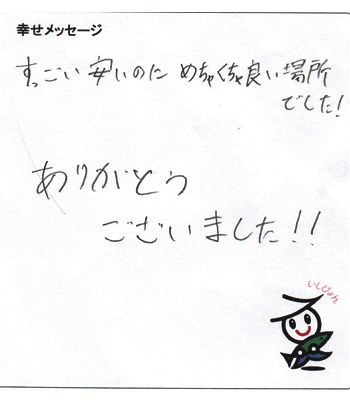 幸せメッセージ
すっごい安いのに めちゃくちゃ良い場所
でした!
ありがとう
ございました!!
いしぴょん